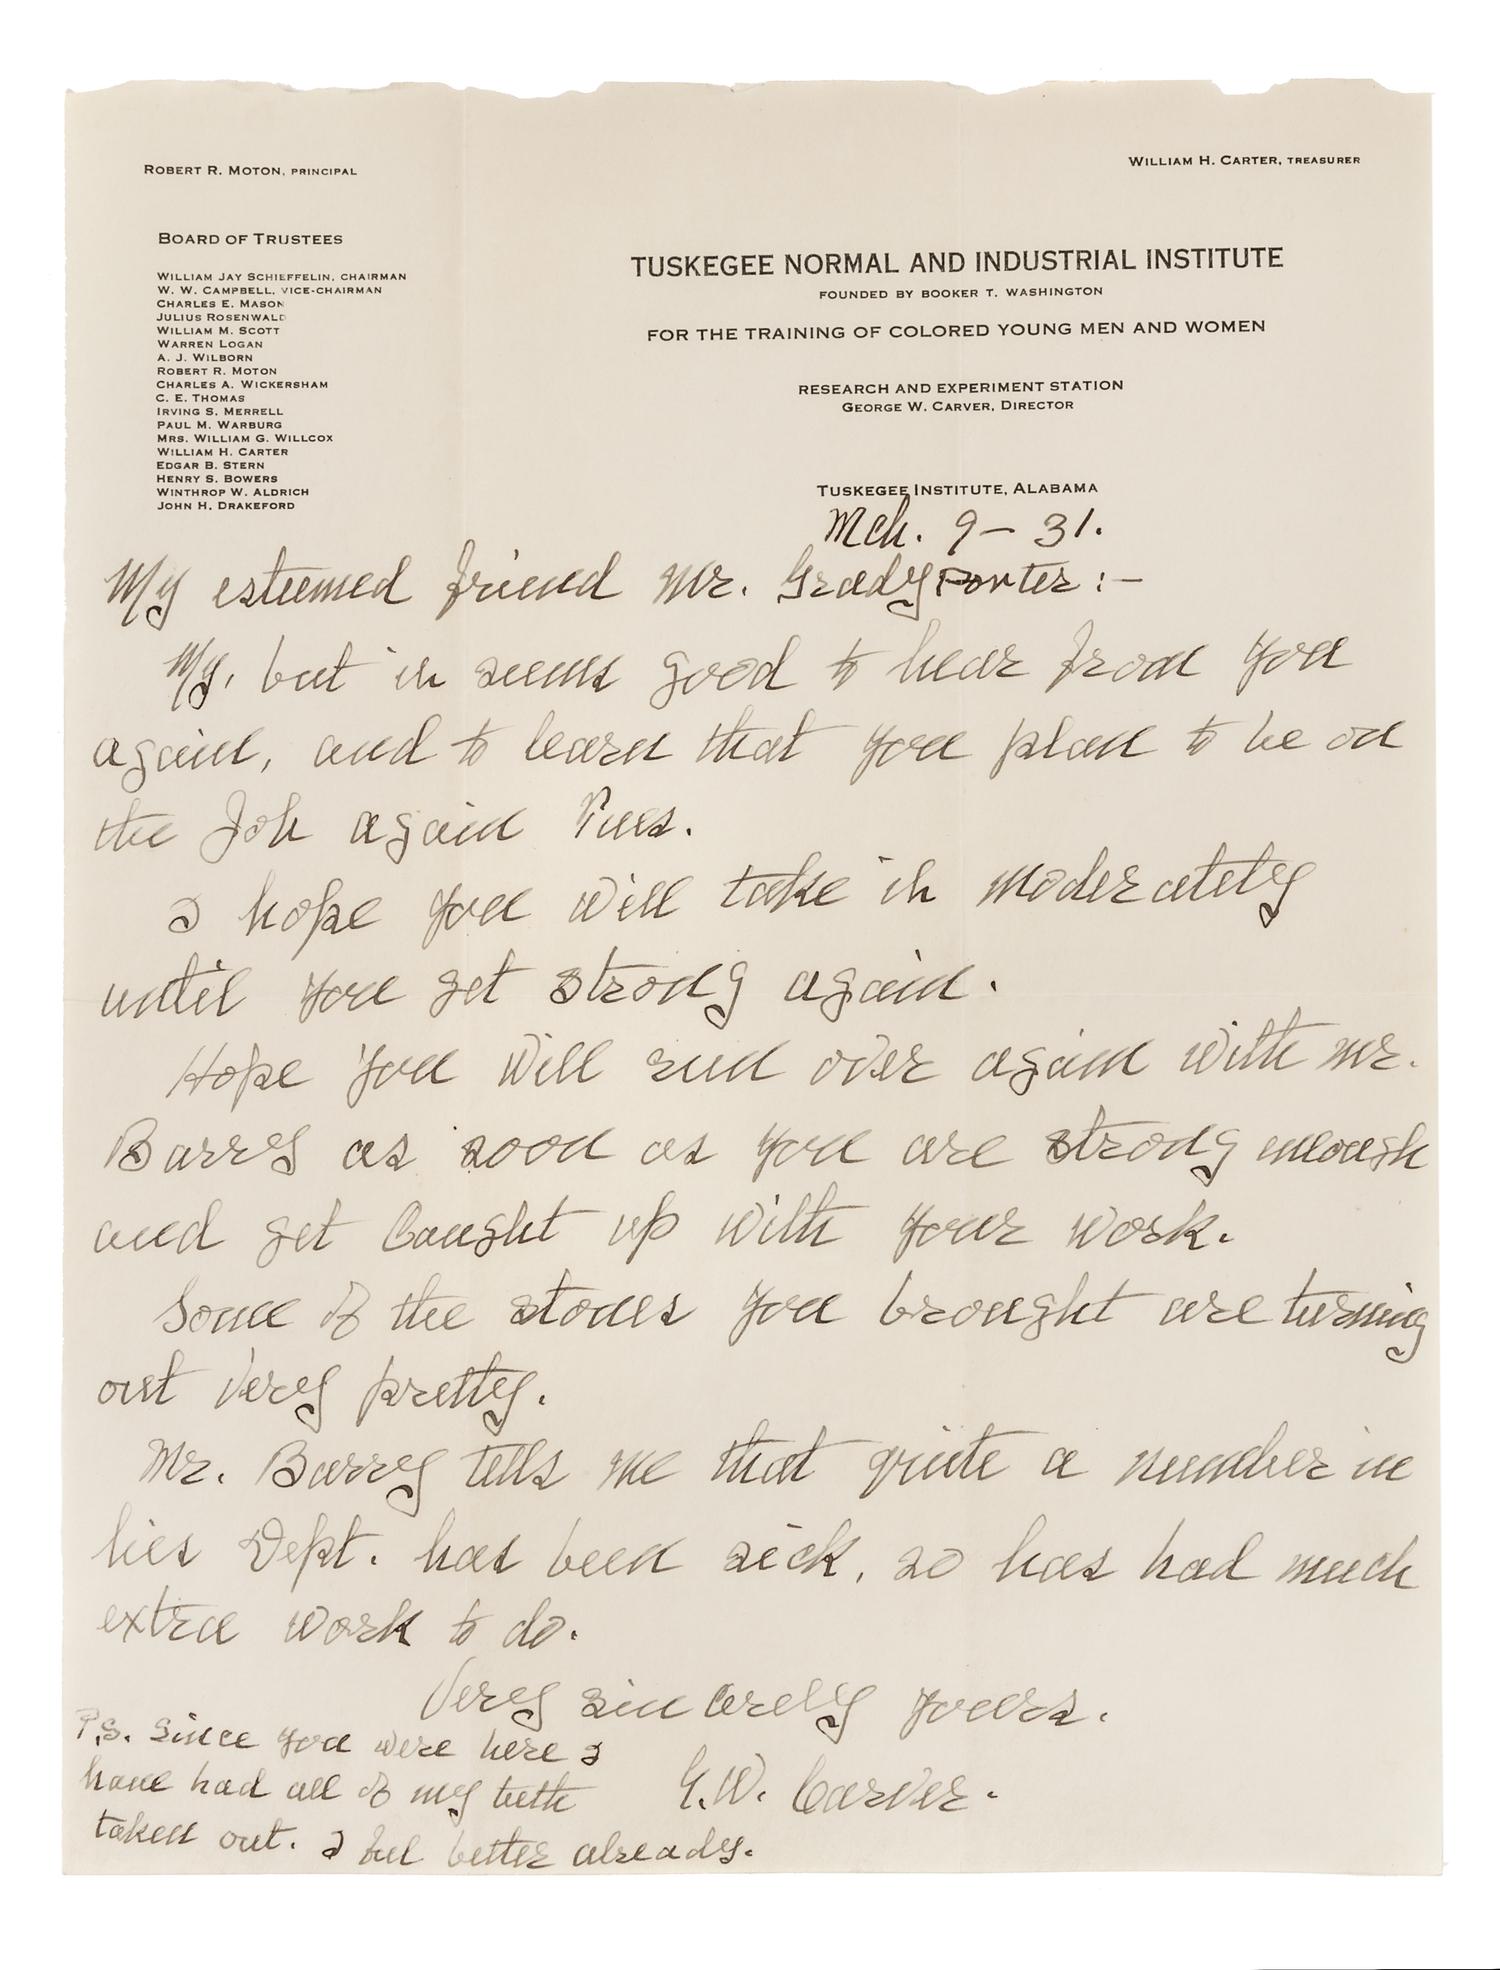 ROBERT R. MOTON, PRINCIPAL
WILLIAM H. CARTER, TREASURER
BOARD OF TRUSTEES
WILLIAM JAY SCHIEFFELIN, CHAIRMAN
W. W. CAMPBELL, VICE-CHAIRMAN
CHARLES E. MASON
JULIUS ROSENWALD
WILLIAM M. SCOTT
WARREN LOGAN
A. J. WILBORN
ROBERT R. MOTON
CHARLES A. WICKERSHAM
C. E. THOMAS
IRVING S. MERRELL
PAUL M. WARBURG
MRS. WILLIAM G. WILLCOX
WILLIAM H. CARTER
EDGAR B. STERN
HENRY S. BOWERS
WINTHROP W. ALDRICH
JOHN H. DRAKEFORD
TUSKEGEE NORMAL AND INDUSTRIAL INSTITUTE
FOUNDED BY BOOKER T. WASHINGTON
FOR THE TRAINING OF COLORED YOUNG MEN AND WOMEN
RESEARCH AND EXPERIMENT STATION
GEORGE W. CARVER, DIRECTOR
TUSKEGEE INSTITUTE, ALABAMA
Mch. 9–31.
My esteemed friend Mr. Grady Porter:–
My, but it seems good to hear from you
again, and to learn that you plan to be on
the Job again Tues.
I hope you will take it moderately
until you get strong again.
Hope you will run over again with Mr.
Barry as soon as you are strong enough
and get caught up with your work.
Some of the stones you brought are turning
out very pretty.
Mr. Barry tells me that quite a number in
his Dept. has been sick, so has had much
extra work to do.
Very sincerely yours.
G.W. Carver.
P.S. Since you were here I
have had all of my teeth
taken out. I feel better already.